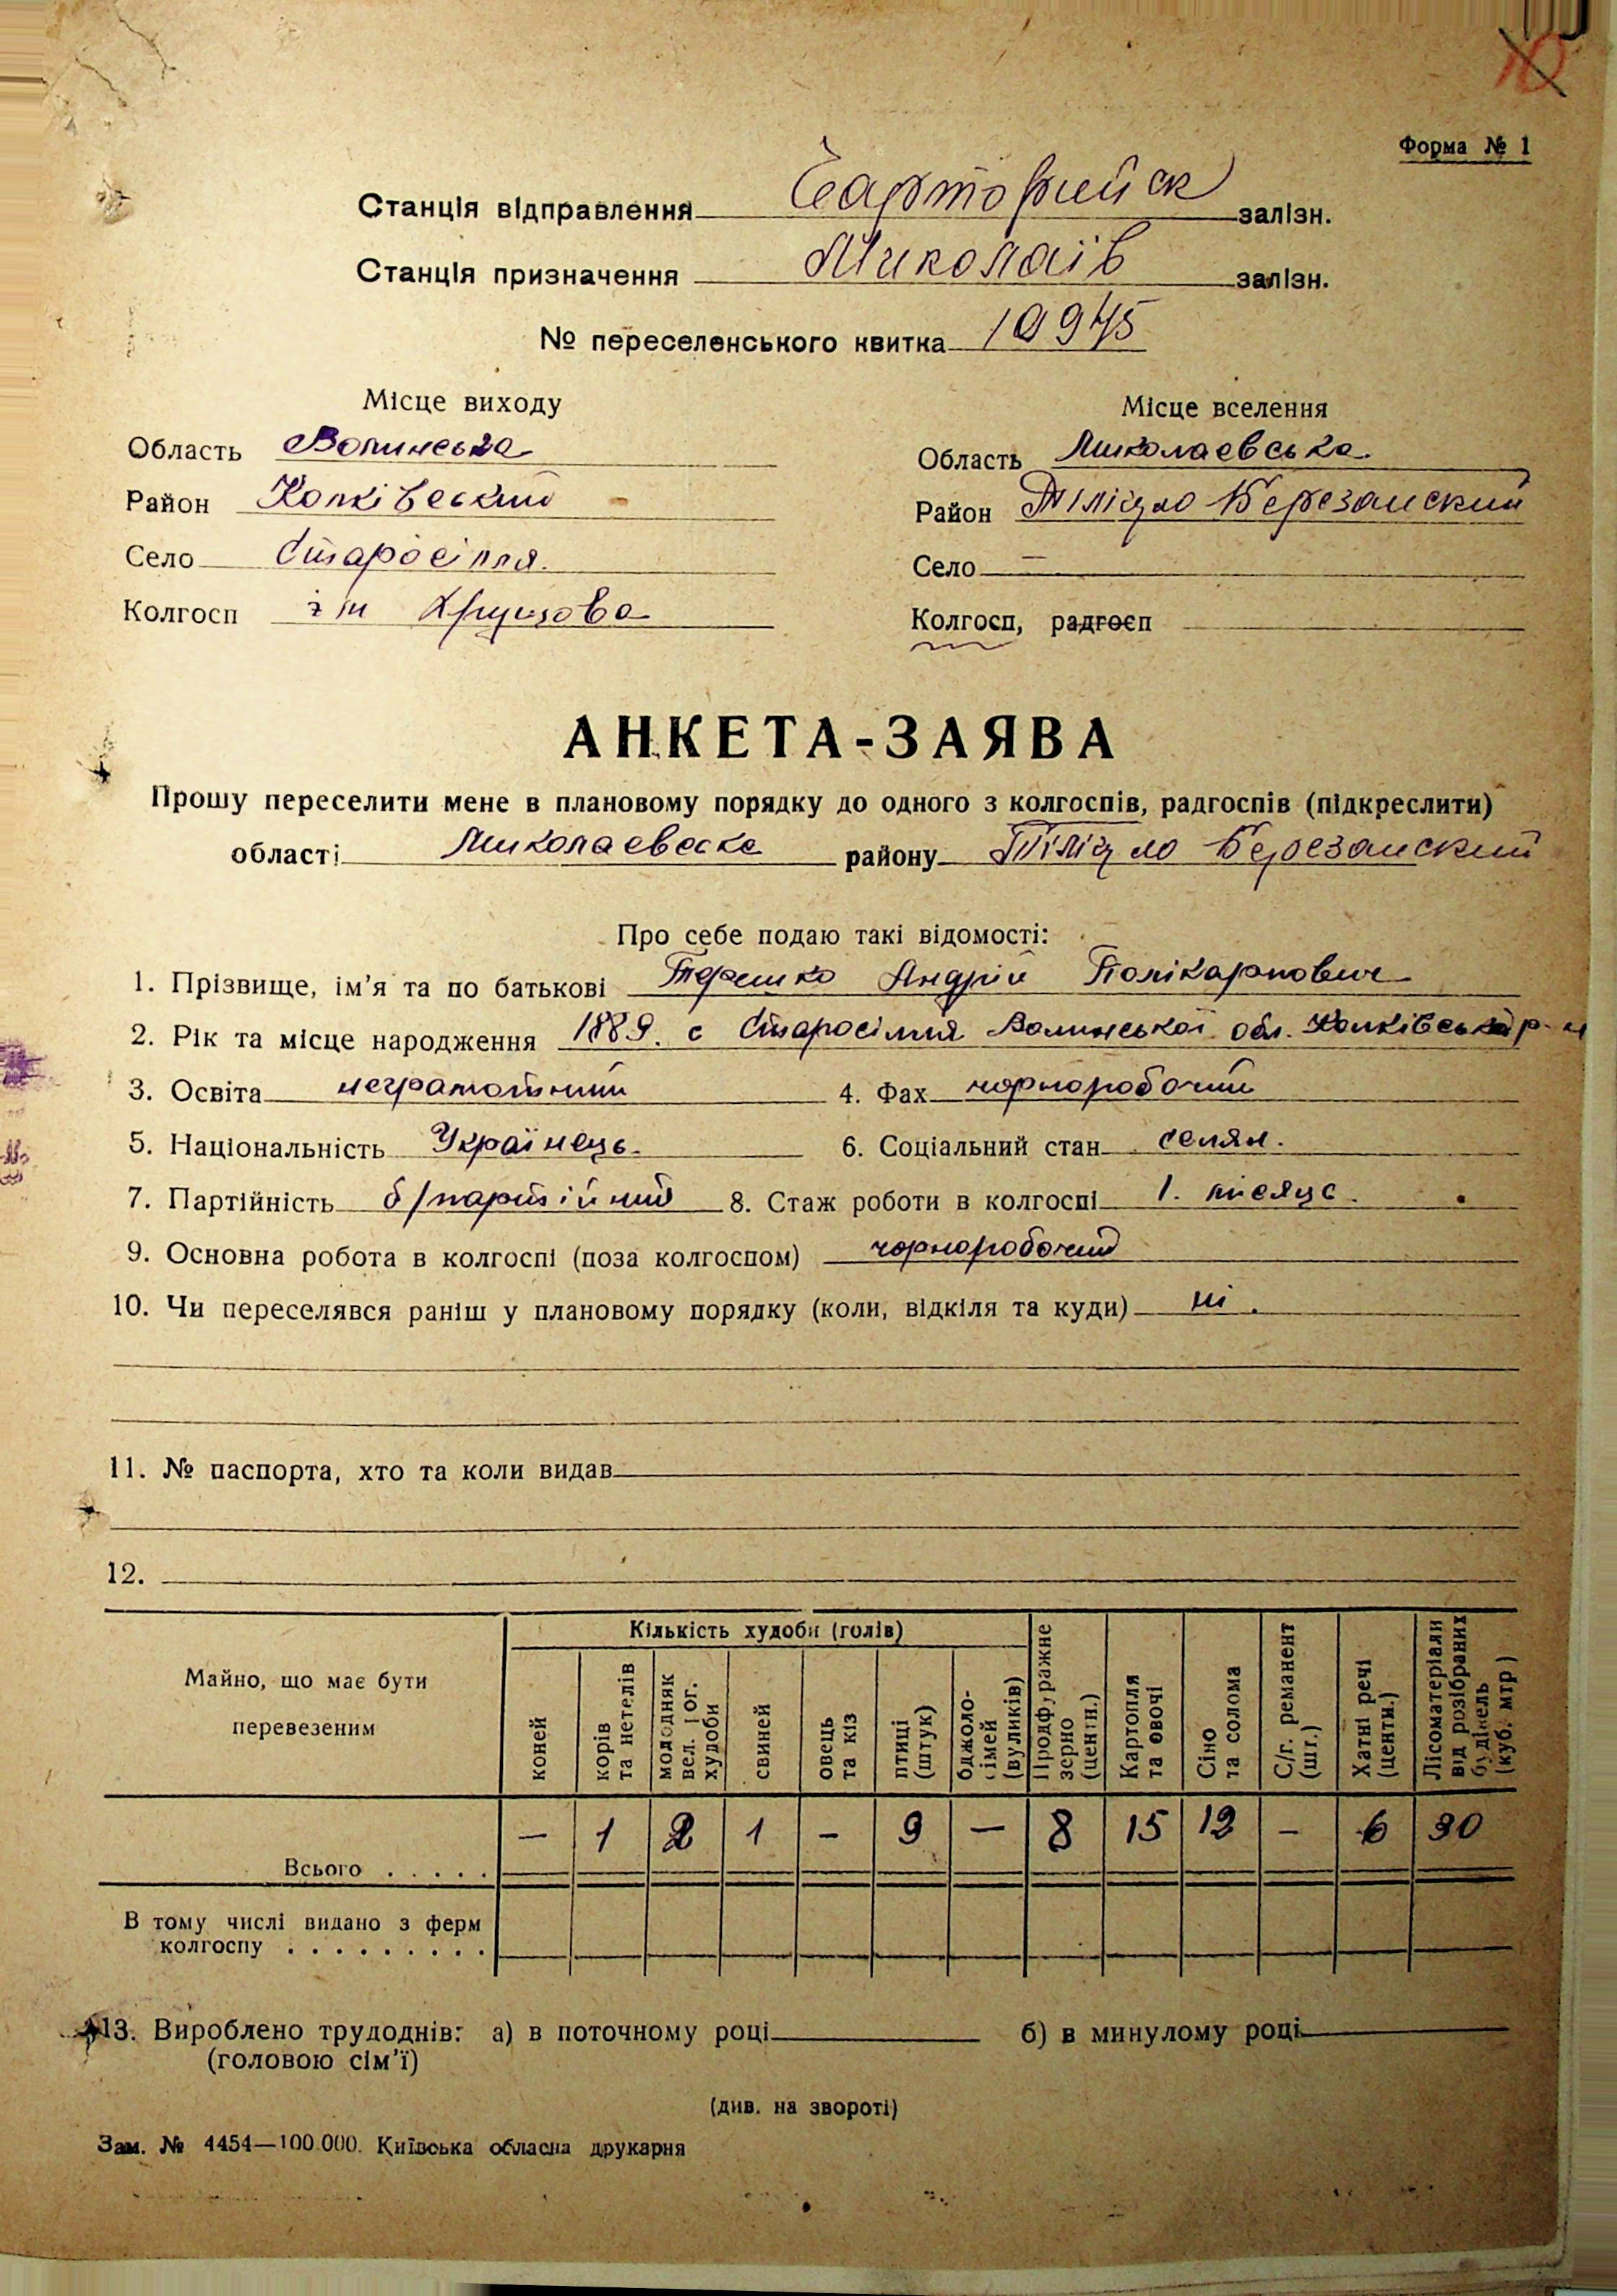 10
Форма № 1
Станція відправлення Чарторийск залізн.
Станція призначення Миколаїв залізн.
№ переселенського квитка 10945
Місце виходу
Область Волинська
Район Колківський
Село Старосілля.
Колгосп ім Хрущова
Місце вселення
Область Миколаевська
Район Тілігуло Березанский
Село —
Колгосп, радгосп
АНКЕТА-ЗАЯВА
Прошу переселити мене в плановому порядку до одного з колгоспів, радгоспів (підкреслити)
області Миколаевска району Тілігуло Березанский
Про себе подаю такі відомості:
1. Прізвище, ім'я та по батькові Андрій Полікарпович
2. Рік та місце народження 1889. с Старосілля Волинської обл. Колківський р-н
3. Освіта неграмотний 4. Фах чорноробочий
5. Національність Українець. 6. Соціальний стан селян.
7. Партійність б/партійний 8. Стаж роботи в колгоспі 1. місяць.
9. Основна робота в колгоспі (поза колгоспом) чорноробочий
10. Чи переселявся раніш у плановому порядку (коли, відкіля та куди) ні.
11. № паспорта, хто та коли видав
12.
Майно, що має бути перевезеним
Кількість худоби (голів)
коней
корів та нетелів
молодняк вел. рог. худоби
свиней
овець та кіз
птиці (штук)
бджоло-сімей (вуликів)
Продфуражне зерно (центн.)
Картопля та овочі
Сіно та солома
С/г. реманент (шт.)
Хатні речі (центн.)
Лісоматеріали від розібраних будівель (куб. мтр)
Всього . . . . . — 1 2 1 — 9 — 8 15 12 — 6 30
В тому числі видано з ферм
колгоспу . . . . . . . . .
13. Вироблено трудоднів: а) в поточному році б) в минулому році
(головою сім'ї)
(див. на звороті)
Зам. № 4454—100.000. Київська обласна друкарня